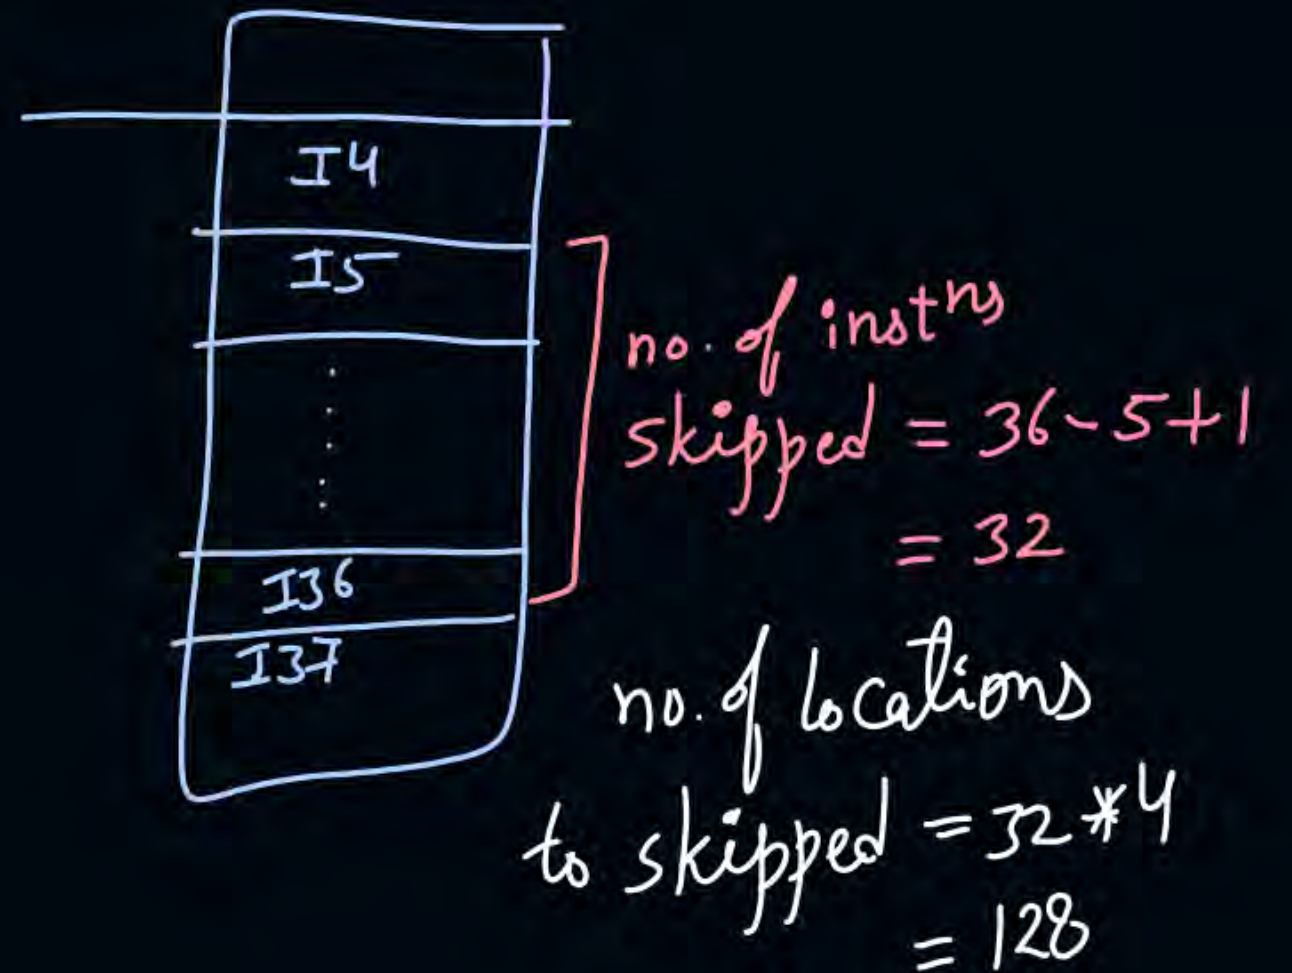 I4
I5
no. of instns
skipped = 36-5+1
= 32
I36
I37
no. of locations
to skipped = 32*4
= 128